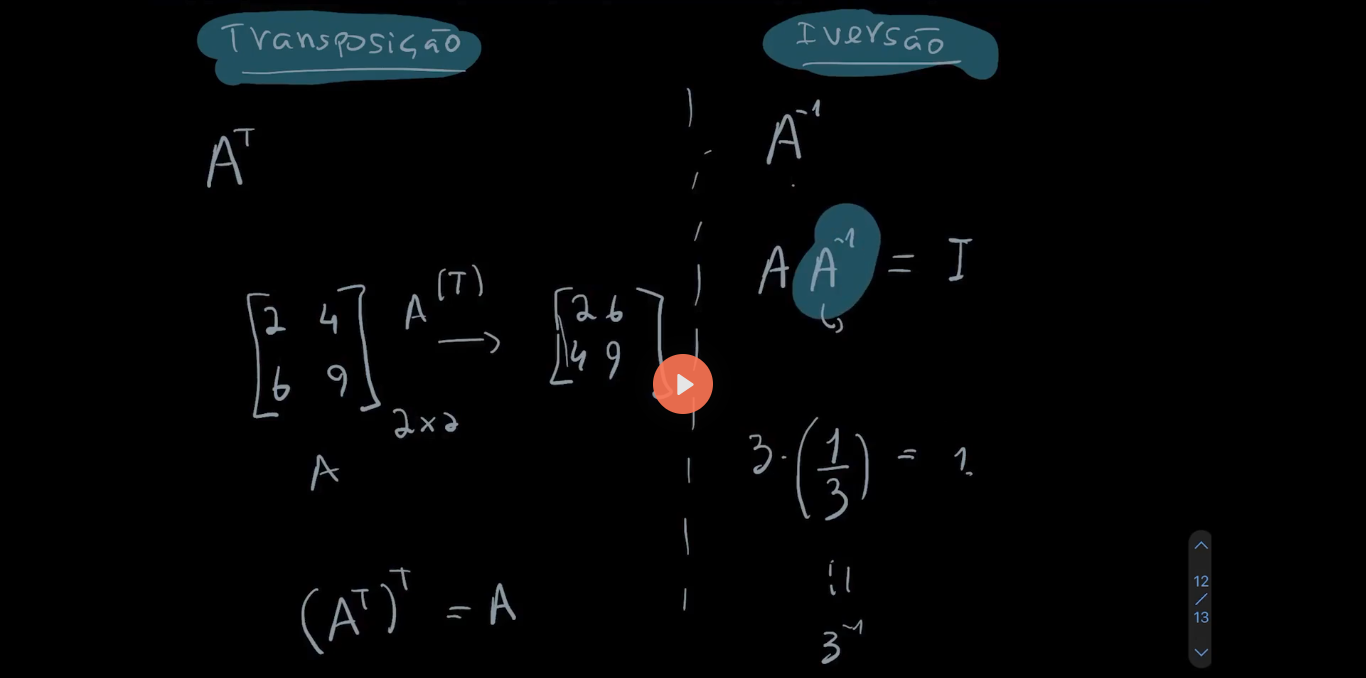 Transposição
A^T
[2 4
6 9] 2x2
A
A^(T) →
[2 6
4 9]
(A^T)^T = A
Iversão
A^-1
A A^-1 = I
3 · (1/3) = 1
3^-1
12
/
13